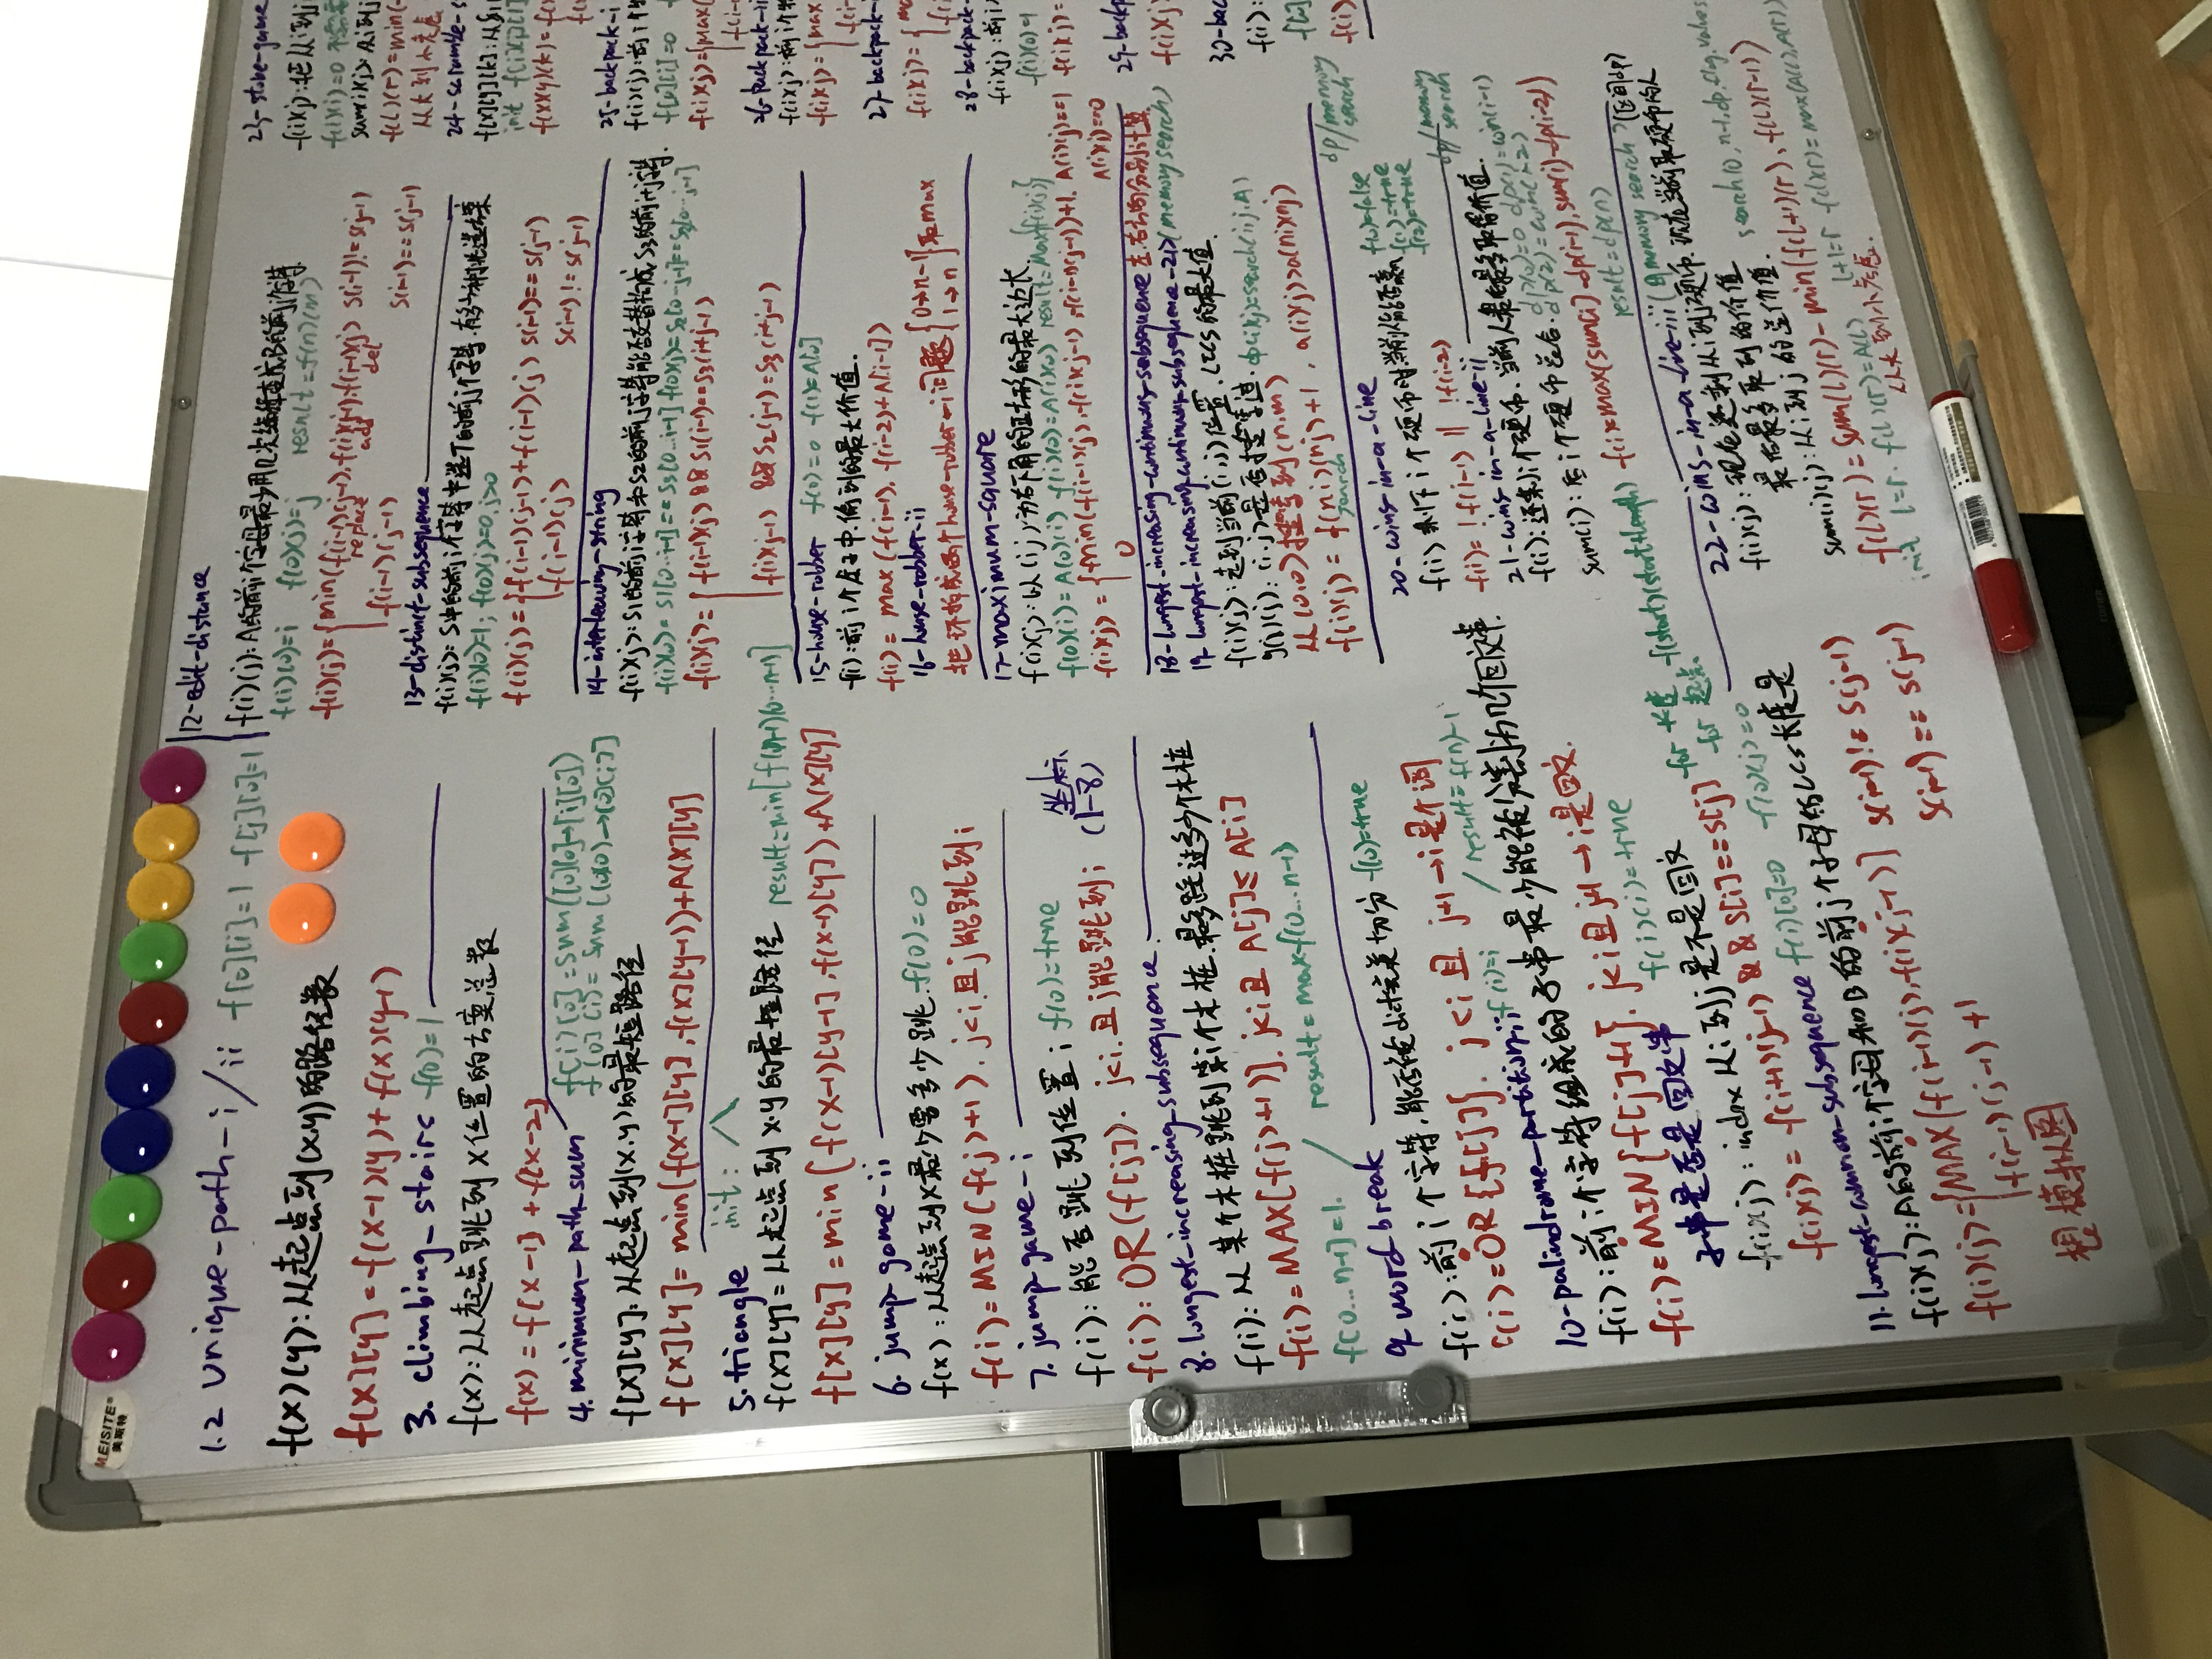 MEISITE®
美斯特
1.2 unique-path-i/ii f[0][i]=1 f[j][0]=1
f(x)(y):从起点到(x,y)的路径数
f[x][y]=f(x-1)(y)+f(x)(y-1)
3. climbing_stairs f(0)=1
f(x):从起点跳到x位置的方案总数
f(x)=f[x-1]+f[x-2]
4. minimum-path-sum f(i)[0]=sum([0][0]→[i][0])
f[0](i)=sum((0)(0)→[0][i])
f[x][y]:从起点到(x,y)的最短路径
f[x][y]=min(f(x-1][y],f(x)(y-1))+A(x][y]
5. triangle init:
f(x)[y]=从起点到x.y的最短路径 result=min[f(n-1)(0...n-1)]
f[x][y]=min(f(x-1)[y-1],f(x-1)[y])+A(x][y]
6. jump game-ii
f(x):从起点到x最少要多少跳. f(0)=0
f(i)=MIN(f(j)+1). j<i.且j能跳到i
7. jump game-i
f(i):能否跳到位置i f(0)=true
坐标
(1-8)
f(i):OR(f[j]). j<i.且j能跳到i
8. longest-increasing_subsequence
f(i):从某个木桩跳到第i个木桩.最多踩过多少个木桩
f(i)=MAX[f(j)+1)]. j<i且A[j]≤A[i]
f[0...n-1]=1. result=maxf(0...n-1)
9. word break
f(i):前i个字符,能否被dict完美切分 f(0)=true
f(i)=OR{f[j]}. j<i且 j+1→i是个词
10-palindrome-partition-ii f(i)=i result=f(n)-1
f(i):前i个字符组成的子串最少能被分割为几个回文串.
f(i)=MIN{f[j]+1}. j<i且j+1→i是回文.
子串是否是回文串 f(i)(i)=true
f(i)(j):index从i到j是不是回文 for 长度
for 起点 f(start)(start+length)
f(i)(j)=f(i+1)(j-1)&&s[i]==s[j]
11. longest-common-subsequence f(i)[0]=0 f(0)(j)=0
f(i)(j):A的前i个字母和B的前j个字母的LCS长度是
f(i)(j)={MAX[f(i-1)(j),f(i)(j-1)] s(i-1)!=s(j-1)
f(i-1)(j-1)+1 s(i-1)==s(j-1)
想模拟图
12-edit-distance
f(i)(j):A的前i个字母最少用几次编辑变成B的前j个字符
f(i)(0)=i f(0)(j)=j result=f(n)(m)
f(i)(j)={min(f(i-1)(j-1),f(i)(j-1),f(i-1)(j) s(i-1)!=s(j-1)
replace add del
f(i-1)(j-1) s(i-1)==s(j-1)
13-distinct-subsequence
f(i)(j):S中的前i个字符中选T的前j个字符.有多少种挑选方案
f(i)(0)=1; f(0)(j)=0,j>0
f(i)(j)={f(i-1)(j-1)+f(i-1)(j) s(i-1)==s(j-1)
f(i-1)(j) s(i-1)!=s(j-1)
14-interleaving-string
f(i)(j):S1的前i字符和S2的前j字符能否交替构成S3的前i+j字符.
f(i)(0)=S1[0...i-1]==S3[0...i-1] f(0)(j)=S2[0...j-1]==S3[0...j-1]
f(i)(j)={f(i-1)(j)&&S1(i-1)==S3(i+j-1)
f(i)(j-1) &&S2(j-1)=S3(i+j-1)
15-house-robber f(0)=0 f(1)=A[0]
f(i):前i个房子中.偷到的最大价值.
f(i)=max(f(i-1),f(i-2)+A[i-1])
16-house-robber-ii
把环拆成两个house-robber-i问题{0→n-1
1→n}取max
17-maximum-square
f(i)(j):以(i,j)为右下角的正方形的最大边长.
f(0)(i)=A(0)(i) f(i)(0)=A(i)(0) result=Max{f(i)(j)}
f(i)(j)={min(f(i-1)(j),f(i)(j-1),f(i-1)(j-1))+1. A(i)(j)==1
0 A(i)(j)==0
18-longest-increasing-continuous-subsequence 左.右方向分别计算
19-longest-increasing-continuous-subsequence-2D(memory search)
f(i)(j):走到当前(i,j)位置.LICS的最大值.
g(i)(j):(i,j)是否搜索过. dp(i)(j)=search(i,j,A)
从(0,0)搜索到(n,m)
f(i)(j)=f(ni)(nj)+1, a(i)(j)>a(ni)(nj)
search
20-coins-in-a-line dp/memory search
f(i)剩下i个硬币时,当前人能否赢 f(0)=false
f(1)=true
f(2)=true
f(i)=!f(i-1)||!f(i-2)
21-coins-in-a-line-ii dp/memory search
f(i):还剩i个硬币.当前人最后最多取得价值.
dp(0)=0 dp(1)=coin(i-1)
sum(i):后i个硬币总合. dp(2)=coin(i-2)
f(i)=max(sum(i)-dp(i-1),sum(i)-dp(i-2))
result=dp(n)
22-coins-in-a-line-iii(用memory search)(区间dp)
f(i)(j):现在还剩从i到j硬币.现在当前取硬币的人
最后最多取到的价值 search(0,n-1,dp,flag,values
sum(i)(j):从i到j的总价值.
f(l)(r)=sum(l)(r)-min(f(l+1)(r),f(l)(r-1))
init l=r. f(l)(r)=A(l) l+1=r f(l)(r)=max(A(l),A(r))
从大到小考虑.
23-stone-game
f(i)(j):把从i到j
f(i)(i)=0 不需要
sum(i)(j):从i到j
f(l)(r)=min(
从大到小考虑
24-scramble-s
f[x][y][k]:从S1
init f[i][j][1]
f(x)(y)(k)=f(x
25-backpack-i
f(i)(j):前i个
f[0][i]=0
f(i)(j)={max(
f(i-
26-backpack-ii
f(i)(j):前i个物
f(i)(j)={max
f(i-
27-backpack-
f(i)(j)={
28-backpack-
f(i)(j):前i
f(i)(0)=1
f(i)(j)=
29-backp
f(i)(j)
30-bac
f(i):
f[0]
f(i)